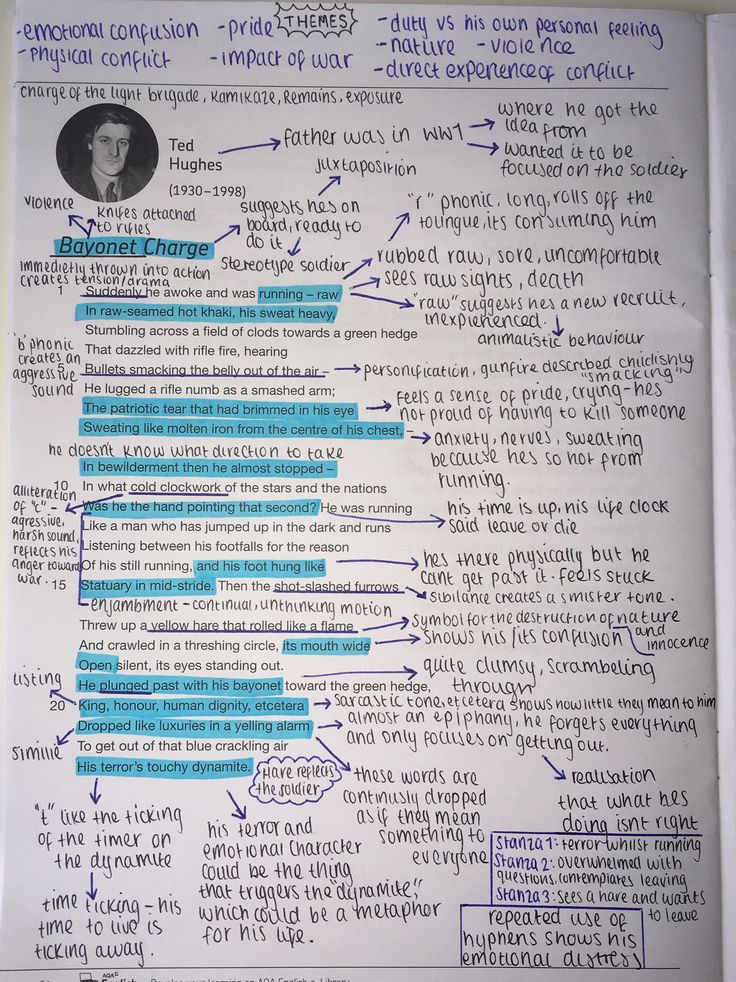 THEMES
-emotional confusion -pride
-physical conflict -impact of war
-duty vs his own personal feeling
-nature -violence
-direct experience of conflict
charge of the light brigade, kamikaze, Remains, exposure
Ted
Hughes
(1930–1998)
father was in WW1
where he got the
idea from
wanted it to be
focused on the soldier
juxtaposition
violence
knifes attached
to rifles
suggests hes on
board, ready to
do it
stereotype soldier
"r" phonic, long, rolls off the
toungue, its consuming him
Bayonet Charge
immedietly thrown into action
creates tension/drama
rubbed raw, sore, uncomfortable
sees raw sights, death
"raw" suggests hes a new recruit,
inexperienced.
animalistic behaviour
1 Suddenly he awoke and was running – raw
In raw-seamed hot khaki, his sweat heavy,
Stumbling across a field of clods towards a green hedge
That dazzled with rifle fire, hearing
5 Bullets smacking the belly out of the air –
He lugged a rifle numb as a smashed arm;
The patriotic tear that had brimmed in his eye
Sweating like molten iron from the centre of his chest, –
'b' phonic
creates an
aggressive
sound
personification, gunfire described childishly
"smacking"
feels a sense of pride, crying-hes
not proud of having to kill someone
anxiety, nerves, sweating
because hes so hot from
running.
he doesn't know what direction to take
In bewilderment then he almost stopped –
10 In what cold clockwork of the stars and the nations
Was he the hand pointing that second? He was running
Like a man who has jumped up in the dark and runs
Listening between his footfalls for the reason
Of his still running, and his foot hung like
15 Statuary in mid-stride. Then the shot-slashed furrows
alliteration
of "c" -
agressive,
harsh sound,
reflects his
anger toward
war.
his time is up, his life clock
said leave or die
hes there physically but he
cant get past it. feels stuck
sibilance creates a sinister tone.
enjambment - continual, unthinking motion
Threw up a yellow hare that rolled like a flame
And crawled in a threshing circle, its mouth wide
Open silent, its eyes standing out.
He plunged past with his bayonet toward the green hedge,
20 King, honour, human dignity, etcetera
Dropped like luxuries in a yelling alarm
To get out of that blue crackling air
His terror's touchy dynamite.
symbol for the destruction of nature
and
innocence
shows his/its confusion
quite clumsy, scrambeling
through
listing
sarcastic tone, etcetera shows how little they mean to him
similie
almost an epiphany, he forgets everything
and only focuses on getting out.
Hare reflects
the soldier
"t" like the ticking
of the timer on
the dynamite
time ticking - his
time to live is
ticking away.
his terror and
emotional character
could be the thing
that triggers the "dynamite",
which could be a metaphor
for his life.
these words are
continusly dropped
as if they mean
something to
everyone
realisation
that what hes
doing isnt right
Stanza 1: terror whilst running
Stanza 2: overwhelmed with
questions, contemplates leaving
Stanza 3: sees a hare and wants
to leave
repeated use of
hyphens shows his
emotional distress
AQA